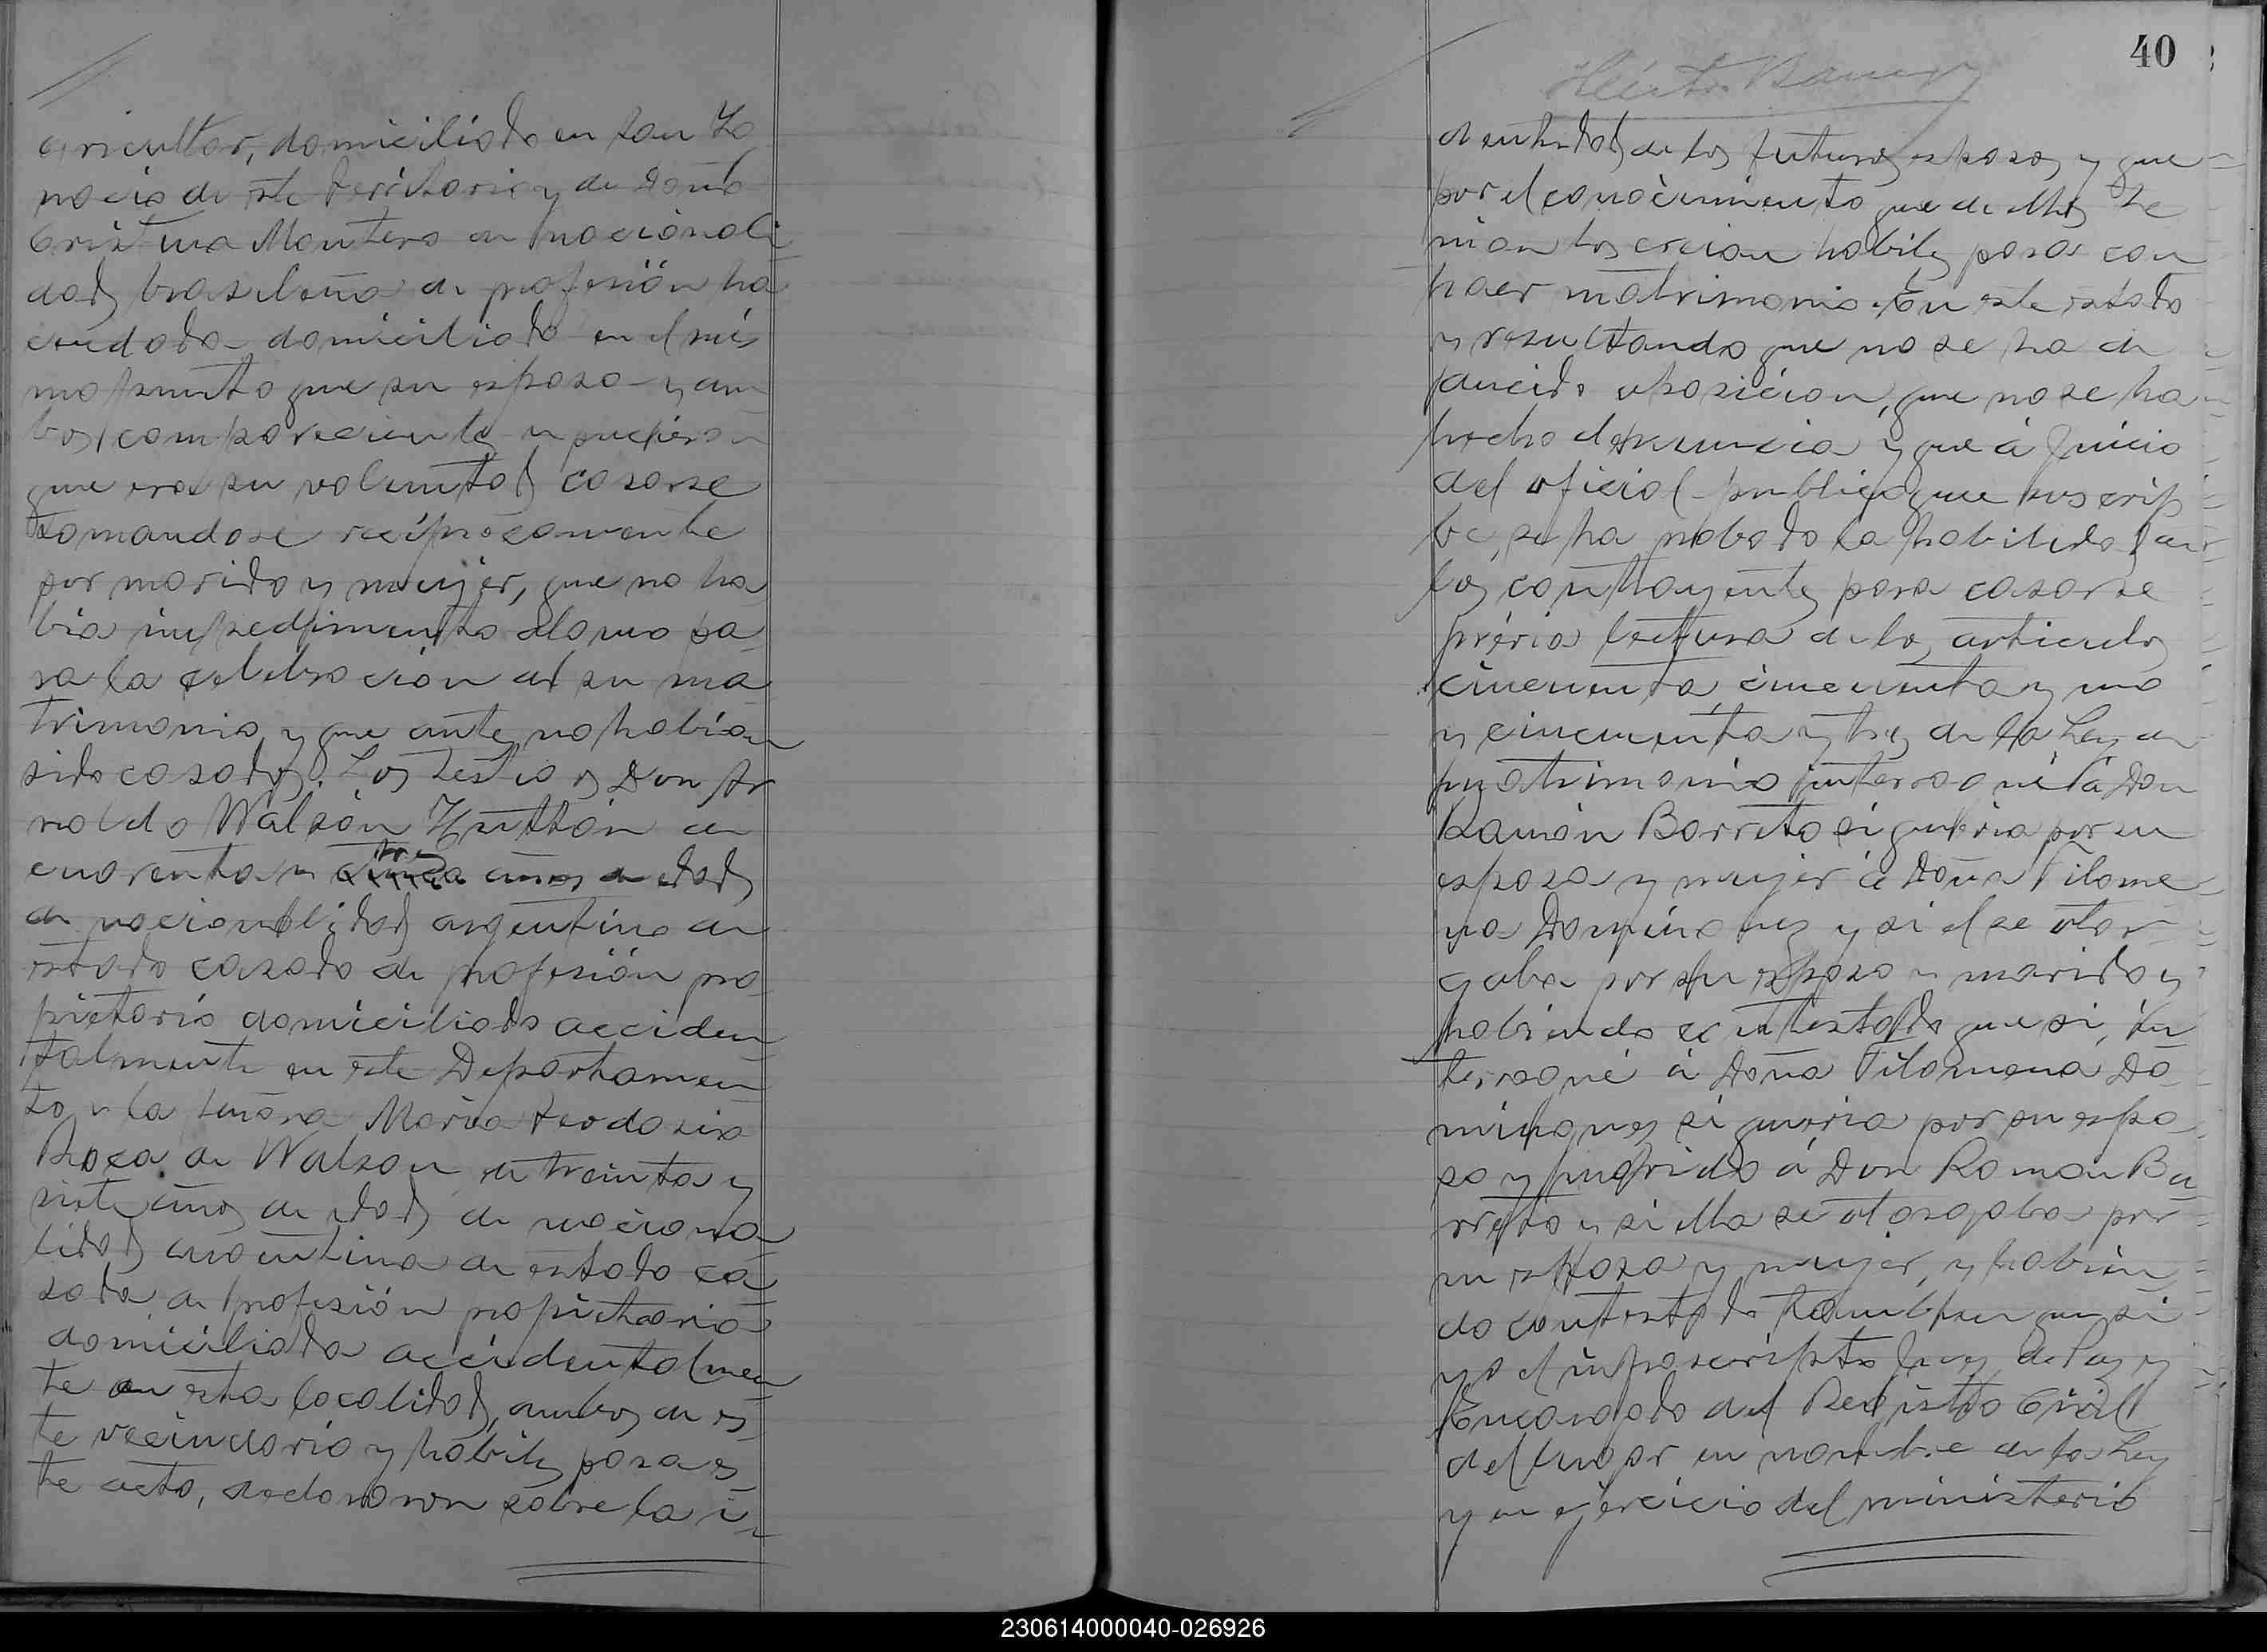 agricultor, domiciliado en San Ig
nacio de este territorio y de Doña
Cristina Montero de nacionali
dad brasileña de profesión ha
cendada domiciliada en el mis
mo punto que su esposo y am
bos comparecientes expusieron
que era su voluntad casarse
tomandose reciprocamente
por marido y mujer, que no ha
bia impedimento alguno pa
ra la celebración de su ma
trimonio y que antes no habían
sido casados. Los testigos Don Ar
noldo Walson Hutton de
cuarenta y tres años de edad
de nacionalidad argentino de
estado casado de profesión pro
pietario domiciliado acciden
talmente en este Departamen
to y la señora María Teodosia
Roca de Walson de treinta y
siete años de edad de naciona
lidad argentina de estado ca
sada de profesión propietaria
domiciliada accidentalmen
te en esta localidad, ambos de es
te vecindario y hábiles para es
te acto, declararon sobre la i
40
Héctor
dentidad de los futuros esposos y que
por el conocimiento que de ellos te
nian los creian habiles para con
traer matrimonio. En este estado
y resultando que no se ha de
ducido oposicion, que no se ha
hecho denuncia y que á juicio
del oficial publico que suscrip
be, se ha probado la habilidad de
los contrayentes para casarse
prévia lectura de los articulos
cincuenta, cincuenta y uno
y cincuenta y tres de la Ley de
matrimonio interrogué á Don
Ramón Barreto si queria por su
esposa y mujer á Doña Filome
na Dominguez y si el se otor
gaba por su esposo y marido y
habiendo contestado que si, in
terrogué á Doña Filomena Do
minguez si queria por su espo
so y marido á Don Ramón Ba
rreto y si ella se otorgaba por
su esposa y mujer, y habien
do contestado tambien que si
yo el infrascripto Juez de Paz y
Encargado del Registro Civil
del lugar en nombre de la Ley
y en ejercicio del ministerio
230614000040-026926